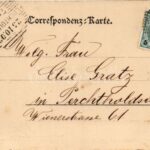 Correspondenz-Karte.
Wolg. Frau
Elise Gratz
in Perchtoldsd
Wienerstrasse 61